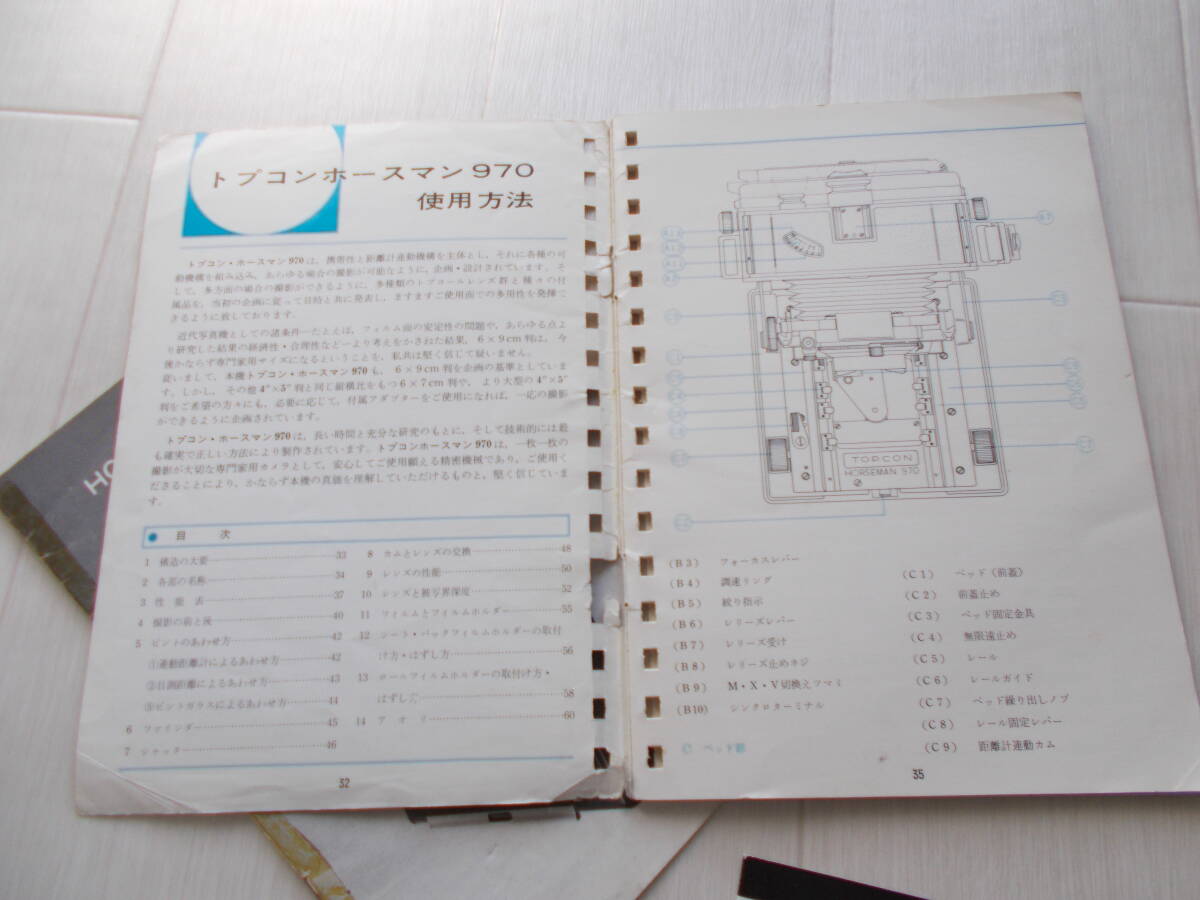 トプコンホースマン970
使用方法
トプコン・ホースマン970は、携帯性と距離計連動機構を主体とし、それに各種の可
動機構を組み込み、あらゆる場合の撮影が可能なように、企画・設計されています。そ
して、多方面の場合の撮影ができるように、多種類のトプコールレンズ群と種々の付
属品を、当初の企画に従って日時と共に発表し、ますますご使用面での多用性を発揮で
きるように致しております。
近代写真機としての諸条件―たとえば、フィルム面の安定性の問題や、あらゆる点よ
り研究した結果の経済性・合理性など―より考えをかさねた結果、6×9cm判は、今
後かならず専門家用サイズになるということを、私共は堅く信じて疑いません。
従いまして、本機トプコン・ホースマン970も、6×9cm判を企画の基準としていま
す。しかし、その他4"×5"判と同じ縦横比をもつ6×7cm判や、より大型の4"×5"
判をご希望の方々にも、必要に応じて、付属アダプターをご使用になれば、一応の撮影
ができるように企画されています。
トプコン・ホースマン970は、長い時間と充分な研究のもとに、そして技術的には最
も確実で正しい方法により製作されています。トプコンホースマン970は、一枚一枚の
撮影が大切な専門家用カメラとして、安心してご使用願える精密機械であり、ご使用く
ださることにより、かならず本機の真価を理解していただけるものと、堅く信じていま
す。
● 目 次
1 構造の大要 33
2 各部の名称 34
3 性能表 37
4 撮影の前と後 40
5 ピントのあわせ方 42
①連動距離計によるあわせ方 42
②目測距離によるあわせ方 43
③ピントガラスによるあわせ方 44
6 ファインダー 45
7 シャッター 46
8 カムとレンズの交換 48
9 レンズの性能 50
10 レンズと被写界深度 52
11 フィルムとフィルムホルダー 55
12 シート・パックフィルムホルダーの取付
け方・はずし方 56
13 ロールフィルムホルダーの取付け方・
はずし方 58
14 アオリ 60
32
TOPCON
HORSEMAN 970
(B3) フォーカスレバー
(B4) 調速リング
(B5) 絞り指示
(B6) レリーズレバー
(B7) レリーズ受け
(B8) レリーズ止めネジ
(B9) M・X・V切換えツマミ
(B10) シンクロターミナル
Ⓒ ベッド部
(C1) ベッド(前蓋)
(C2) 前蓋止め
(C3) ベッド固定金具
(C4) 無限遠止め
(C5) レール
(C6) レールガイド
(C7) ベッド繰り出しノブ
(C8) レール固定レバー
(C9) 距離計連動カム
35
HO